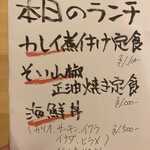 本日のランチ
カレイ煮付け定食
そい山椒
正油焼き定食
海鮮丼
(カツオ、サーモン、イクラ
イナダ、ヒラメ)
¥1,500-